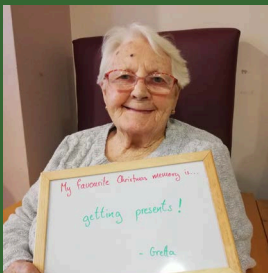 My favourite Christmas memory is...
getting presents!
- Gretta